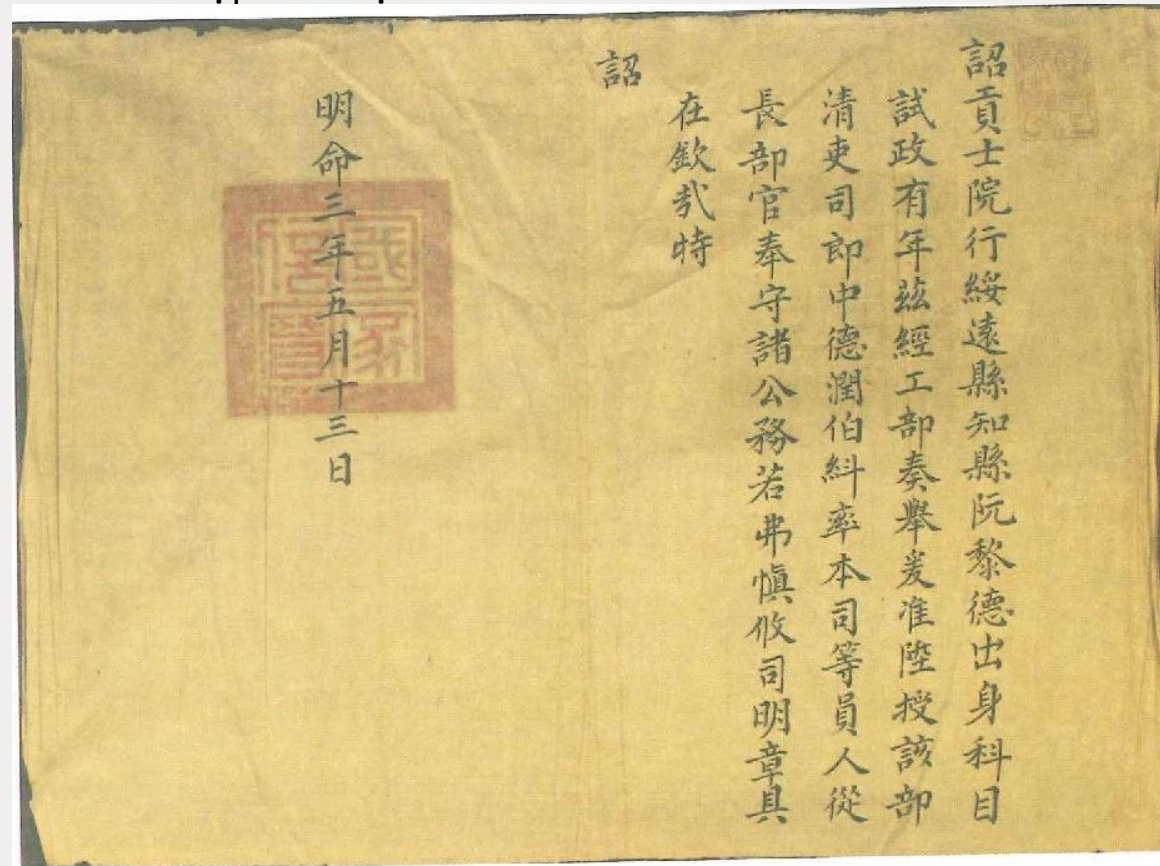 詔貢士院行綏遠縣知縣阮黎德出身科目
試政有年茲經工部奏舉爰准陞授該部
清吏司郎中德潤伯糾率本司等員人從
長部官奉守諸公務若弗慎攸司明章具
在欽哉特
詔
明命三年五月十三日
國家信寶